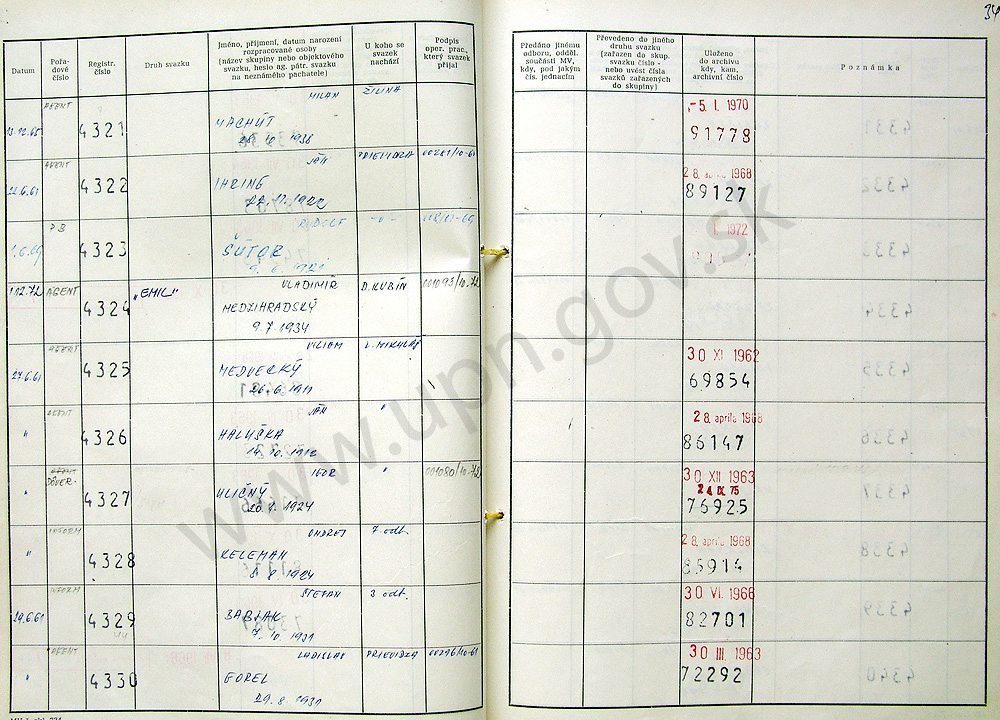 34
Datum
Pořa-
dové
číslo
Registr.
číslo
Druh svazku
Jméno, příjmení, datum narození
rozpracované osoby
(název skupiny nebo objektového
svazku, heslo ag. pátr. svazku
na neznámého pachatele)
U koho se
svazek
nachází
Podpis
oper. prac.,
který svazek
přijal
Předáno jinému
odboru, odděl.
součásti MV,
kdy, pod jakým
čís. jednacím
Převedeno do jiného
druhu svazku
(zařazen do skup.
svazku číslo -
nebo uvést čísla
svazků zařazených
do skupiny)
Uloženo
do archivu
kdy, kam,
archivní číslo
Poznámka
AGENT MILAN ŽILINA
4321 MACHUT
-5. I. 1970
91778
AGENT JÁN PRIEVIDZA
22.6.61 4322 IHRING
28. 1968
89127
PB RUDOLF -"-
4323 ŠÚTOR
I. 1972
1.12.72 AGENT 4324 „EMIL" VLADIMÍR D. KUBÍN 001093/10-72
MEDZIHRADSKÝ
9.7.1934
AGENT VILIAM L. MIKULÁŠ
27.6.61 4325 MEDVECKÝ
30 XI 1962
69854
AGENT JÁN "
" 4326 HALUŠKA
14.10.1912
28. aprila 1968
86147
AGENT
DÔVER- IGOR " 001080/10-72
" 4327 ULIČNÝ
20.1.1924
30 XII 1963
24. IX. 75
76925
INFORM ONDREJ 7. odt.
" 4328 KELEMAN
8.8.1924
28. aprila 1968
85914
INFORM ŠTEFAN 3 odt.
29.6.61 4329 BABJAK
7.10.1931
30 VI. 1966
82701
AGENT LADISLAV PRIEVIDZA 00296/10-61
" 4330 GOREL
29.8.1931
30 III. 1963
72292
www.upn.gov.sk